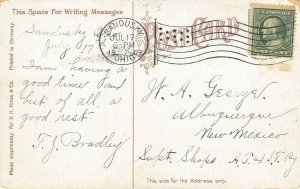 This Space For Writing Messages
CARD
SANDUSKY
JUL 17
PM
OHIO
Sandusky
July 17
I am having a
good time and
best of all, a
good rest.
T. J. Bradley
W. A. George.
Albuquerque
New Mexico
Supt. Shops A.T. and S.F. Ry
This side for the Address only.
Printed in Germany.
Made expressly for S. H. Knox & Co.